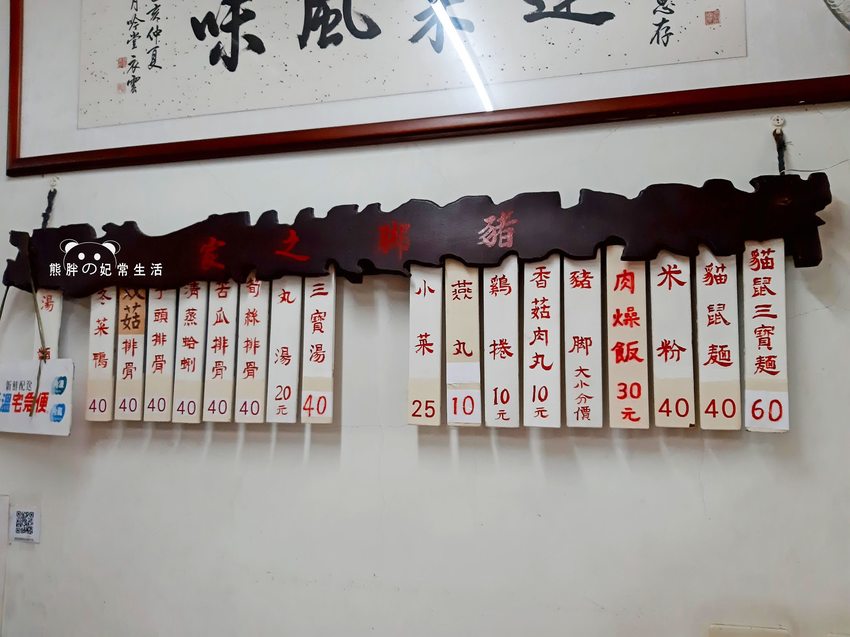 味 風
亥仲夏
月吟堂衣雲
思存
豬腳之家
貓鼠三寶麵 60
貓鼠麵 40
米粉 40
肉燥飯 30元
豬腳 大小分價
香菇肉丸 10元
鷄捲 10元
燕丸 10
小菜 25
三寶湯 40
丸湯 20元
筍絲排骨 40
苦瓜排骨 40
清蒸蛤蜊 40
丁頭排骨 40
菇排骨 40
冬菜鴨 40
湯類
新鮮配送
溫宅急便
熊胖の妃常生活